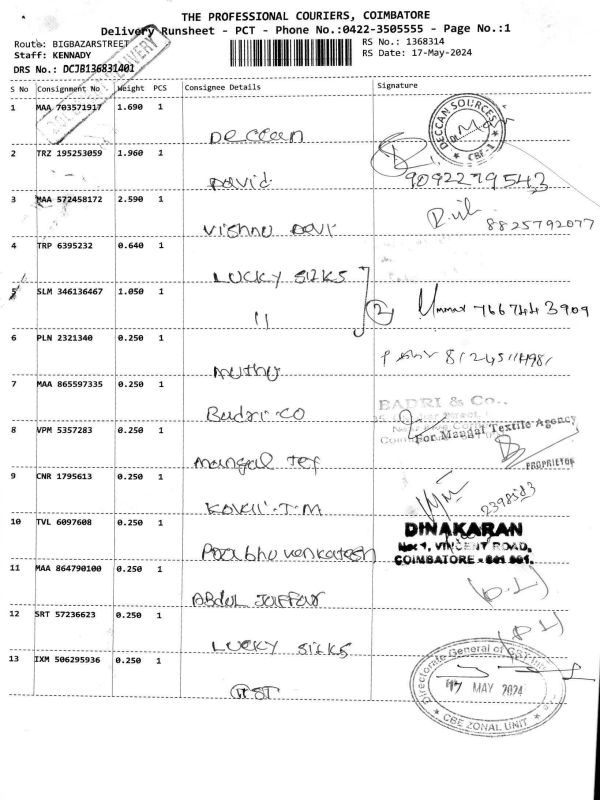 THE PROFESSIONAL COURIERS, COIMBATORE
Delivery Runsheet - PCT - Phone No.:0422-3505555 - Page No.:1
Route: BIGBAZARSTREET
RS No.: 1368314
Staff: KENNADY
RS Date: 17-May-2024
DRS No.: DCJB136831401
DELIVERY
S No Consignment No Weight PCS Consignee Details Signature
1 MAA 703571917 1.690 1 Deccan DECCAN SOURCES CBE-1
2 TRZ 195253059 1.960 1 David 9092279543
3 MAA 572458172 2.590 1 Vishnu Devi 8825792077
4 TRP 6395232 0.640 1 LUCKY SILKS
5 SLM 346136467 1.050 1 11 2 Ummar 7667443909
6 PLN 2321340 0.250 1 Muthu
7 MAA 865597335 0.250 1 Badri.CO BADRI & Co.,
8 VPM 5357283 0.250 1 Mangal Tex For Mangal Textile Agency
PROPRIETOR
9 CNR 1795613 0.250 1 KOVAI.T.M
10 TVL 6097608 0.250 1 Prabhu venkatesh DINAKARAN
No: 1, VINCENT ROAD,
COIMBATORE - 641 001.
11 MAA 864790100 0.250 1 ABDUL JAFFAR
12 SRT 57236623 0.250 1 LUCKY SILKS
13 IXM 506295936 0.250 1 GST Directorate General of GST
MAY 2024
CBE ZONAL UNIT